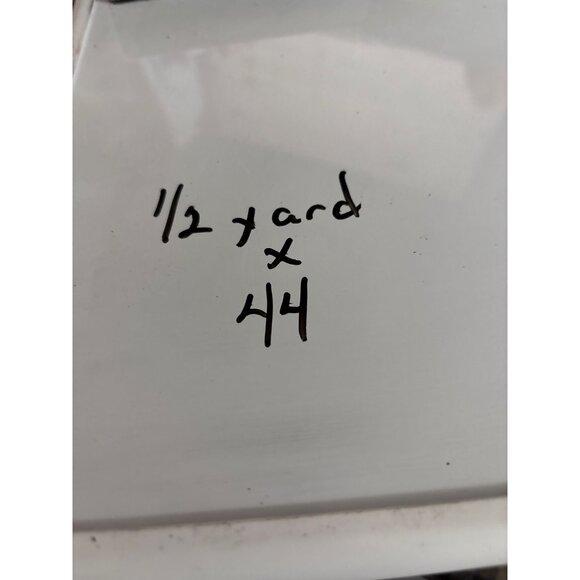 1/2 yard
x
44